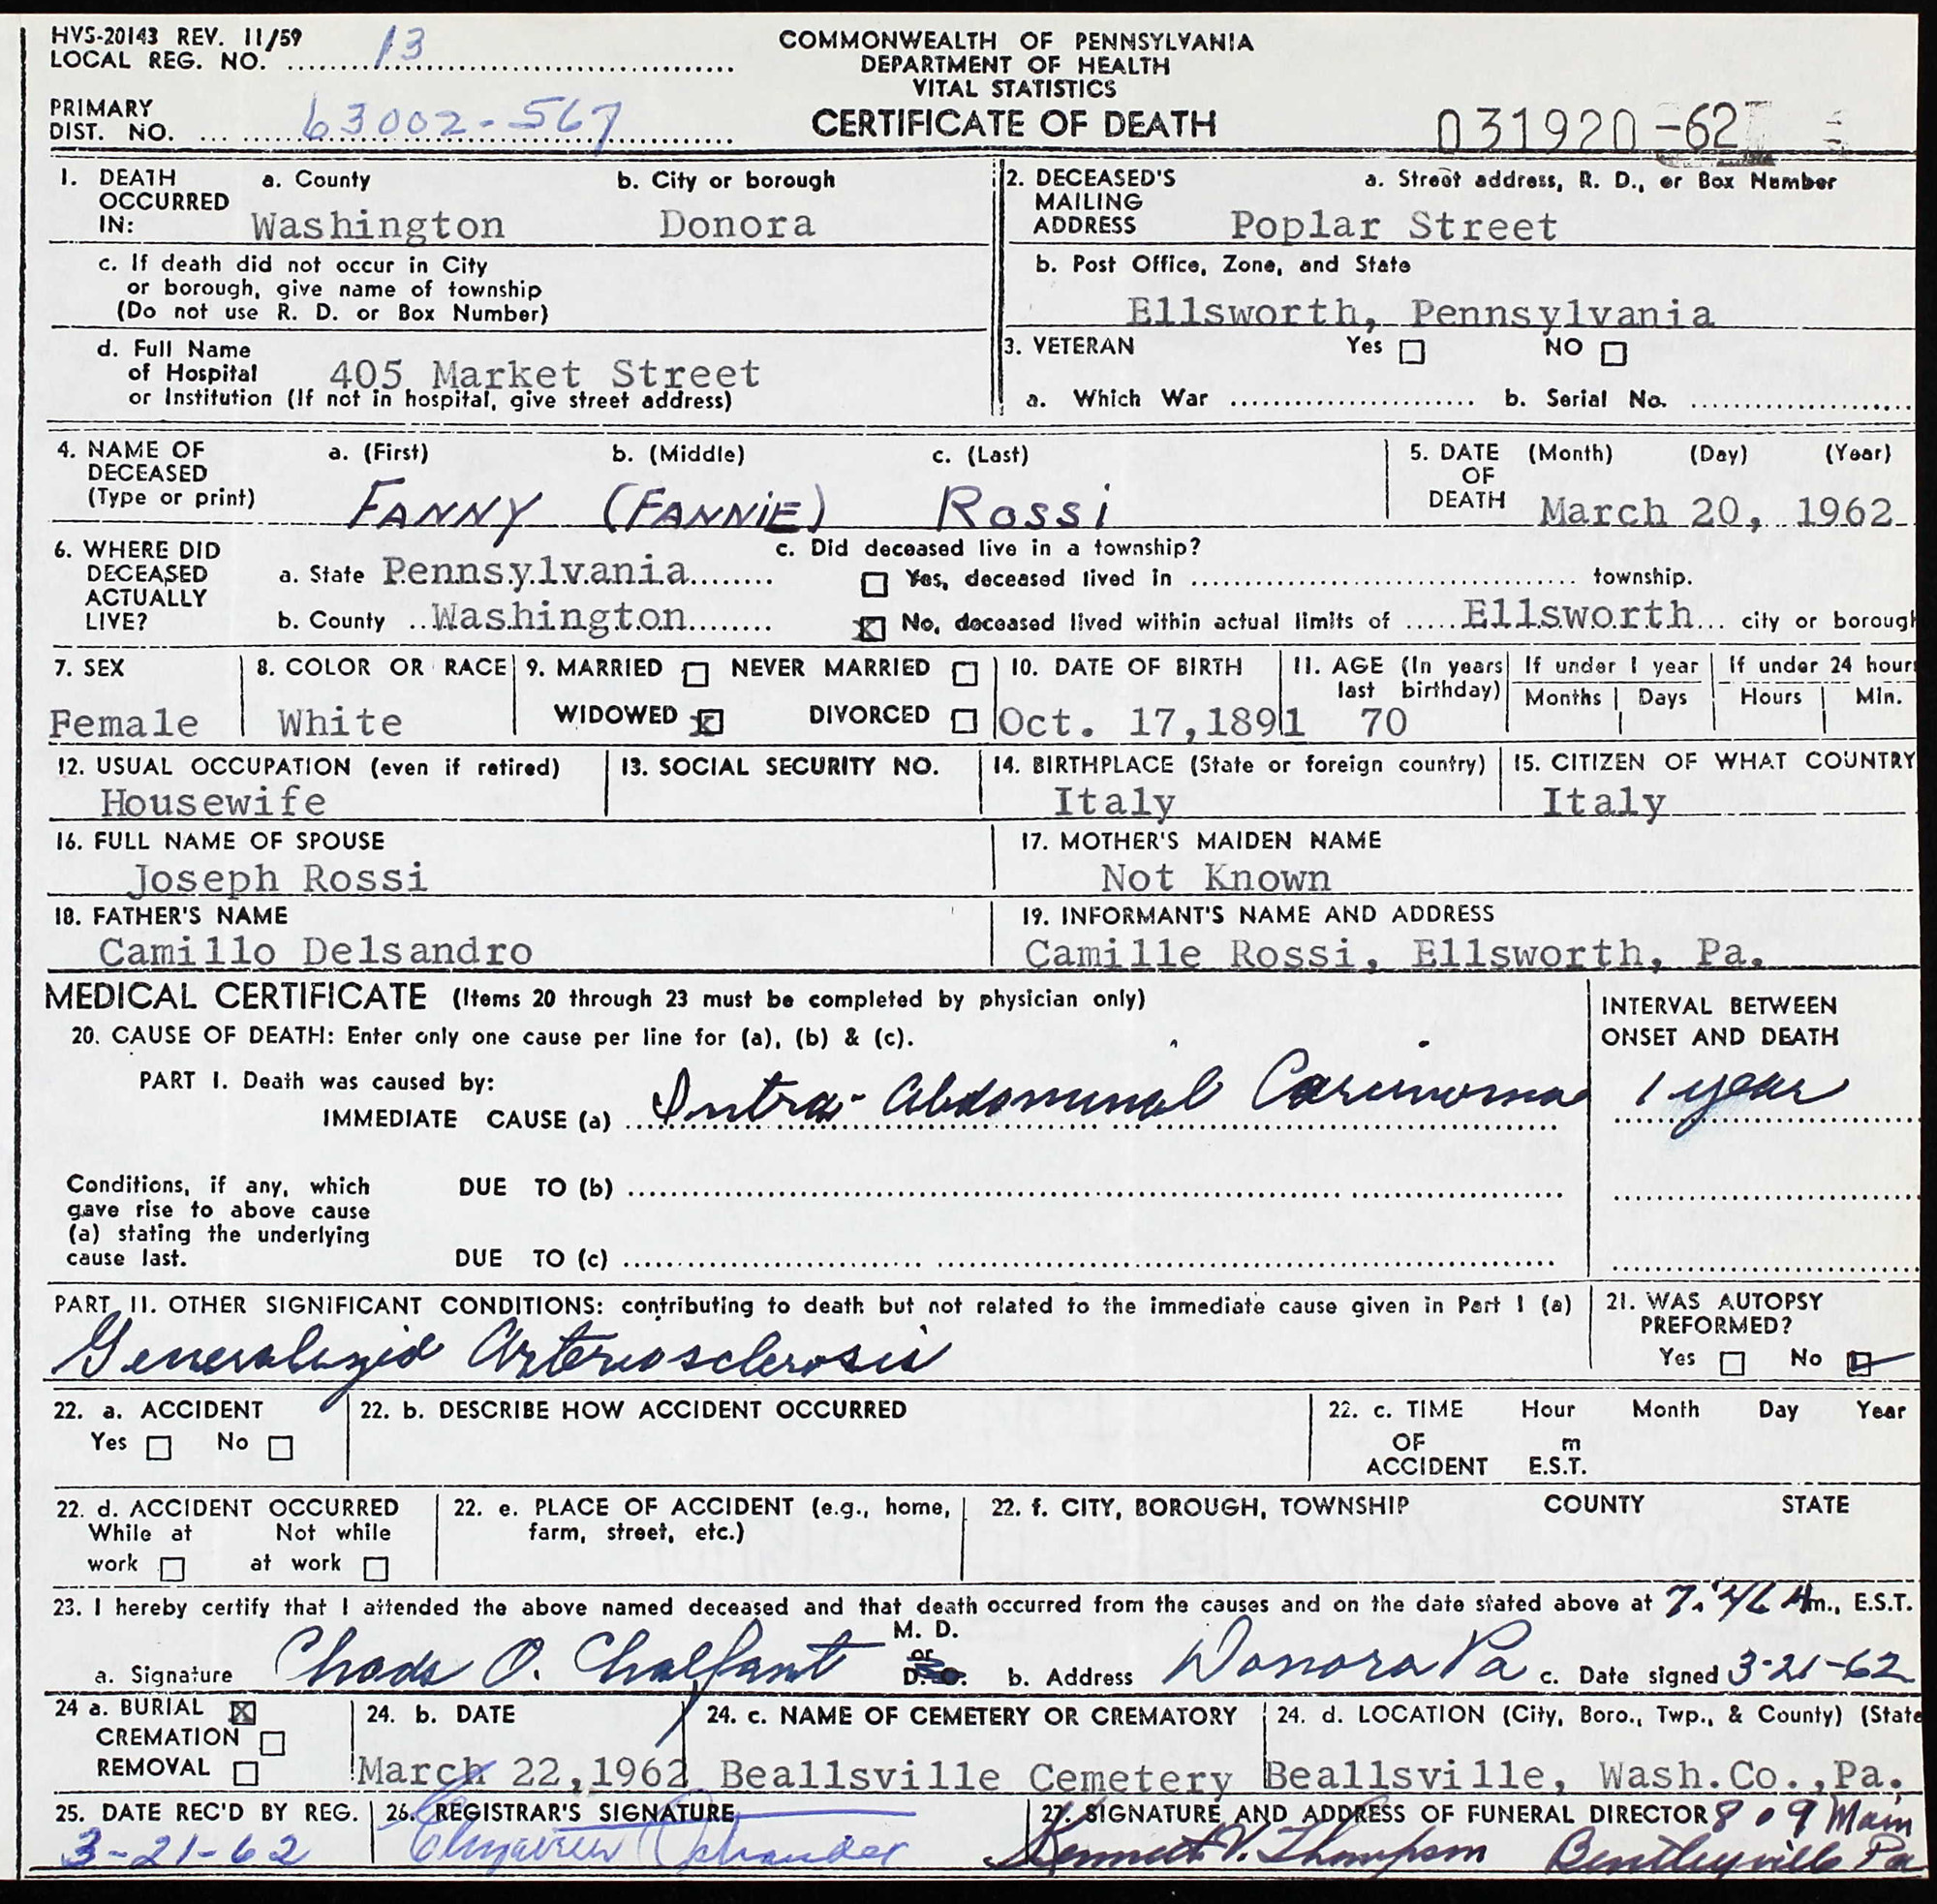 HVS-20143 REV. 11/59
LOCAL REG. NO. 13
COMMONWEALTH OF PENNSYLVANIA
DEPARTMENT OF HEALTH
VITAL STATISTICS
CERTIFICATE OF DEATH
PRIMARY DIST. NO. 63002-567
031920-62
1. DEATH OCCURRED IN: a. County Washington b. City or borough Donora
c. If death did not occur in City
or borough, give name of township
(Do not use R. D. or Box Number)
d. Full Name of Hospital 405 Market Street
or Institution (If not in hospital, give street address)
2. DECEASED'S MAILING ADDRESS a. Street address, R. D., or Box Number
Poplar Street
b. Post Office, Zone, and State
Ellsworth, Pennsylvania
3. VETERAN Yes NO
a. Which War b. Serial No.
4. NAME OF DECEASED (Type or print) a. (First) b. (Middle) c. (Last)
FANNY (FANNIE) Rossi
5. DATE OF DEATH (Month) (Day) (Year)
March 20, 1962
6. WHERE DID DECEASED ACTUALLY LIVE?
a. State Pennsylvania
b. County Washington
c. Did deceased live in a township?
Yes, deceased lived in township.
X No, deceased lived within actual limits of Ellsworth city or boroug
7. SEX Female
8. COLOR OR RACE White
9. MARRIED NEVER MARRIED
WIDOWED X DIVORCED
10. DATE OF BIRTH Oct. 17,1891
11. AGE (In years last birthday) 70
If under 1 year Months Days
If under 24 hour Hours Min.
12. USUAL OCCUPATION (even if retired) Housewife
13. SOCIAL SECURITY NO.
14. BIRTHPLACE (State or foreign country) Italy
15. CITIZEN OF WHAT COUNTRY Italy
16. FULL NAME OF SPOUSE Joseph Rossi
17. MOTHER'S MAIDEN NAME Not Known
18. FATHER'S NAME Camillo Delsandro
19. INFORMANT'S NAME AND ADDRESS Camille Rossi, Ellsworth, Pa.
MEDICAL CERTIFICATE (Items 20 through 23 must be completed by physician only)
INTERVAL BETWEEN ONSET AND DEATH
20. CAUSE OF DEATH: Enter only one cause per line for (a), (b) & (c).
PART I. Death was caused by:
IMMEDIATE CAUSE (a) Intra-Abdominal Carcinoma 1 year
Conditions, if any, which
gave rise to above cause
(a) stating the underlying
cause last.
DUE TO (b)
DUE TO (c)
PART II. OTHER SIGNIFICANT CONDITIONS: contributing to death but not related to the immediate cause given in Part I (a)
Generalized Arteriosclerosis
21. WAS AUTOPSY PREFORMED?
Yes No
22. a. ACCIDENT
Yes No
22. b. DESCRIBE HOW ACCIDENT OCCURRED
22. c. TIME OF ACCIDENT Hour Month Day Year
m
E.S.T.
22. d. ACCIDENT OCCURRED
While at work Not while at work
22. e. PLACE OF ACCIDENT (e.g., home, farm, street, etc.)
22. f. CITY, BOROUGH, TOWNSHIP COUNTY STATE
23. I hereby certify that I attended the above named deceased and that death occurred from the causes and on the date stated above at 7:46 Am., E.S.T.
a. Signature O. Chalfant M. D. or D. O. b. Address Donora Pa c. Date signed 3-21-62
24 a. BURIAL X
CREMATION
REMOVAL
24. b. DATE March 22,1962
24. c. NAME OF CEMETERY OR CREMATORY Beallsville Cemetery
24. d. LOCATION (City, Boro., Twp., & County) (State
Beallsville, Wash.Co.,Pa.
25. DATE REC'D BY REG. 3-21-62
26. REGISTRAR'S SIGNATURE
27. SIGNATURE AND ADDRESS OF FUNERAL DIRECTOR 809 Main
Kenneth V. Thompson Bentleyville Pa